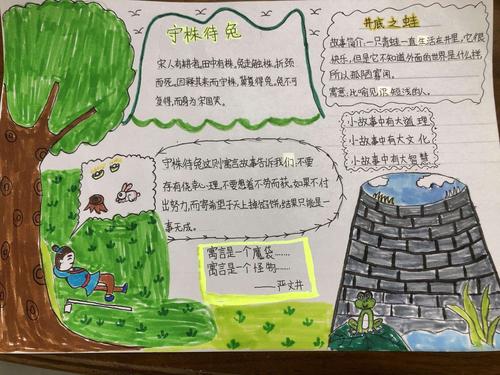 守株待兔
宋人有耕者。田中有株,兔走触株,折颈
而死。因释其耒而守株,冀复得兔。兔不可
复得,而身为宋国笑。
井底之蛙
故事简介:一只青蛙一直生活在井里,它很
快乐,但是它不知道外面的世界是什么样,
所以孤陋寡闻。
寓意:比喻见识短浅的人。
小故事中有大道理
小故事中有大文化
小故事中有大智慧
守株待兔这则寓言故事告诉我们,不要
存有侥幸心理,不要想着不劳而获,如果不付
出努力,而寄希望于天上掉馅饼,结果只能是一
事无成。
寓言是一个魔袋……
寓言是一个怪物……
——严文井